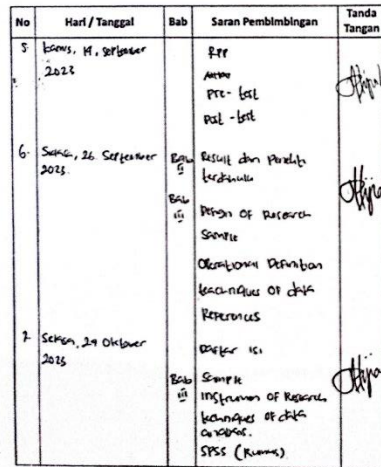 No Hari / Tanggal Bab Saran Pembimbingan Tanda Tangan
5 Kamis, 14, September 2023
RPP
Pre-test
Post-test
6. Selasa, 26 September 2023.
Bab II Result dan Peneliti terdahulu
Bab III Design of Research
Sample
Operational Definition
techniques of data
References
7 Selasa, 24 Oktober 2023
Daftar isi
Bab III Sample
Instrumen of Research
techniques of data analysis.
SPSS (Rumus)